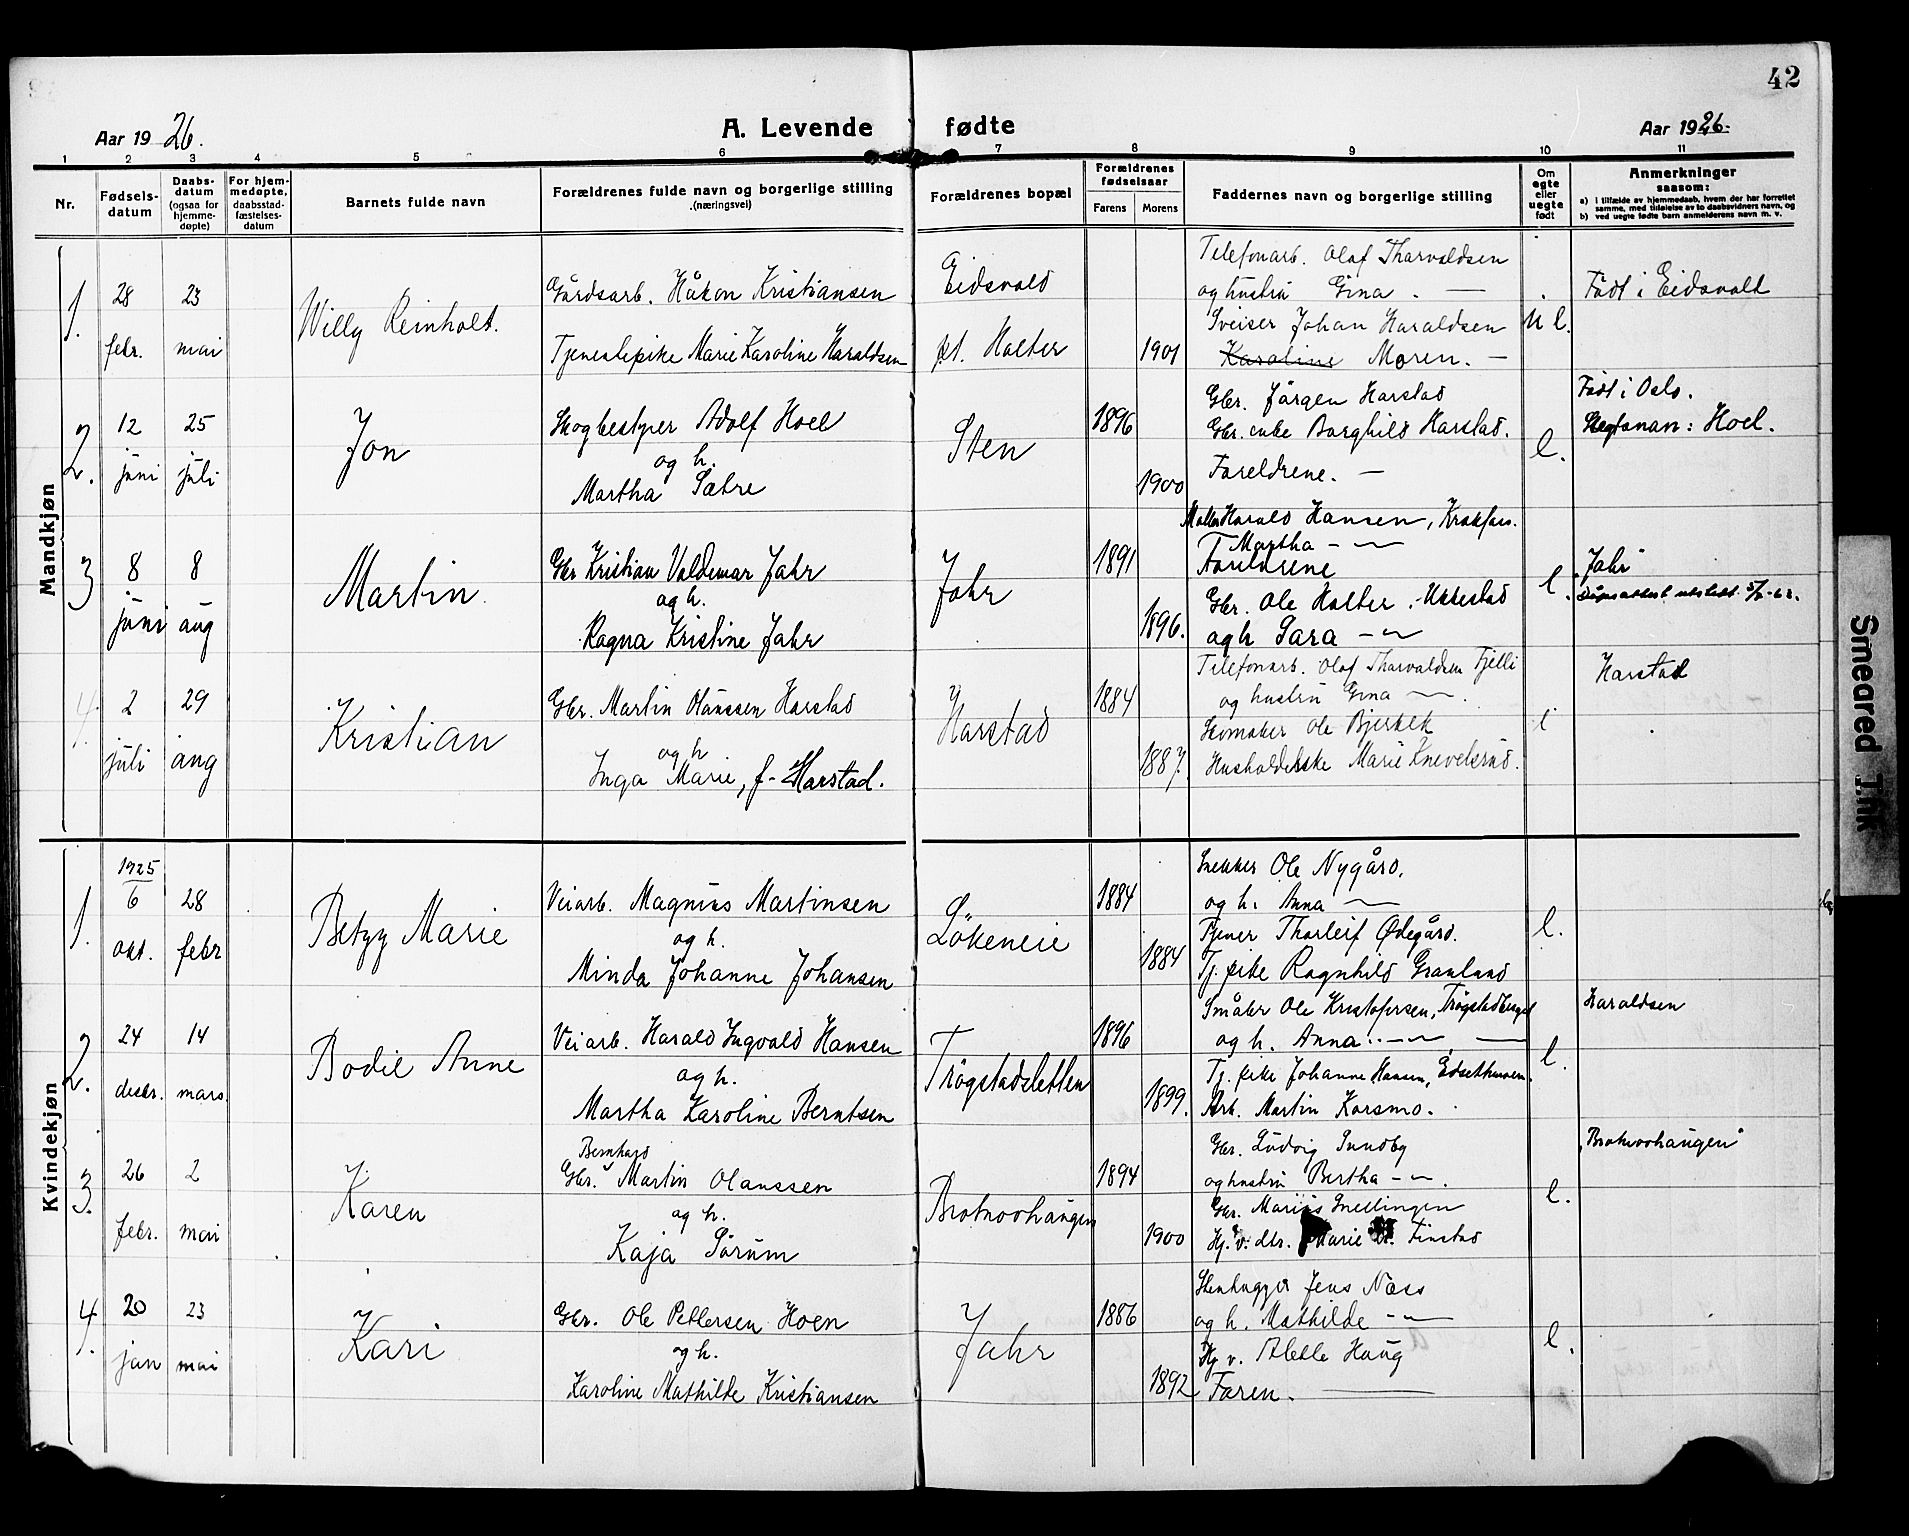 42
Aar 1926.
A. Levende fødte
Aar 1926.
1 2 3 4 5 6 7 8 9 10 11
Nr.
Fødselsdatum
Daabsdatum (ogsaa for hjemmedøpte)
For hjemmedøpte, daabsstadfæstelsesdatum
Barnets fulde navn
Forældrenes fulde navn og borgerlige stilling (næringsvei)
Forældrenes bopæl
Forældrenes fødselsaar
Farens Morens
Faddernes navn og borgerlige stilling
Om egte eller uegte født
Anmerkninger
saasom:
a) i tilfælde av hjemmedaab, hvem der har forrettet samme, med tilføielse av to daabsvidners navn, og
b) ved uegte fødte barn anmelderens navn m. v.
Mandkjøn
1.
28 febr.
23 mai
Willy Reinholt.
Gårdsarb. Håkon Kristiansen
Tjenestepike Marie Karoline Haraldsen
Eidsvold
pt. Holter
1901
Telefonarb. Olaf Thorvaldsen
og hustru Gina. —
Sveiser Johan Haraldsen
Karoline Moren. —
U e.
Født i Eidsvolt
2.
12 juni
25 juli
Jon
Skogbestyrer Adolf Hoel
og h.
Martha Sætre
Sten
1896
1900
Gbr. Jørgen Harstad
Gbr. enke Borghild Harstad.
Foreldrene. —
e.
Født i Oslo.
Slegtsnan: Hoel.
3
8 juni
8 aug
Martin.
Gbr Kristian Valdemar Jahr
og h.
Ragna Kristine Jahr
Jahr
1891
1896.
Møller Harald Hansen, Krokfoss.
Martha — 〃 —
Foreldrene
Gbr. Ole Holter, Ukkestad
og h Sara — 〃 —
e.
Jahr
Dåpsattest utstedt
4.
2 juli
29 aug
Kristian
Gbr. Martin Olaussen Harstad
og h
Inga Marie, f. Harstad.
Harstad
1884
1887.
Telefonarb. Olaf Thorvaldsen Fjelli
og hustru Gina —
Skomaker Ole Bjerkek
Husholderske Marie Knevelsrud.
e
Harstad
Kvindekjøn
1.
1925
6 okt.
28 febr
Betzy Marie
Veiarb. Magnus Martinsen
og h.
Minda Johanne Johansen
Løkeneie
1884
1884
Snekker Ole Nygård.
og h. Anna —
Tjener Thorleif Ødegård.
Tj. pike Ragnhild Granlund
e.
2.
24 desbr.
14 mars.
Bodil Anne
Veiarb. Harald Ingvald Hansen
og h.
Martha Karoline Berntsen
Trøgstadsletten
1896
1899.
Småbr Ole Kristofersen,
og h. Anna. — 〃 — —
Tj. pike Johanne Hansen,
Arb. Martin Korsmo.
e.
Haraldsen
3.
26 febr.
2 mai
Karen
Bernhard
Gbr. Martin Olaussen
og h.
Kaja Sørum
Brotnovhaugen
1894
1900
Gbr. Ludvig Sundby
og hustru Bertha — 〃 —.
Gbr. Marius Snellingen
Hj. v. dtr. Marie Finstad
e.
„Brotnovhaugen"
4.
20 jan
23 mai
Kari
Gbr. Ole Pettersen Hoen
og h.
Karoline Mathilde Kristiansen
Jahr
1886
1892
Stenhugger Jens Næss
og h. Mathilde — 〃 —
Hj. v. Alette Haug
Faren. —
e.
Smeared Ink